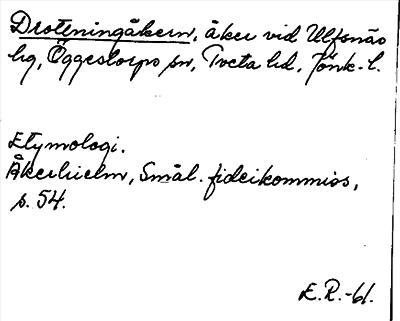 Drottningåkern, åker vid Ulfsnäs
hg, Öggestorps sn, Tveta hd, Jönk. l.
Etymologi.
Åkerhielm, Smål. fideikommiss,
s. 54.
E.R.-61.